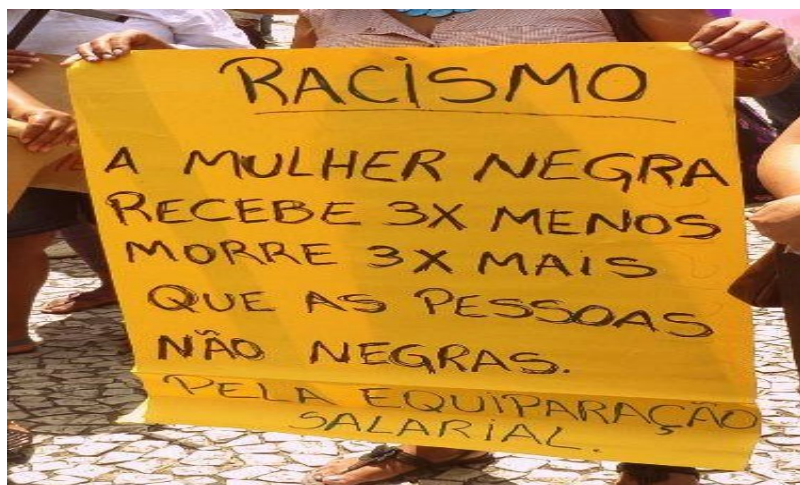 RACISMO
A MULHER NEGRA
RECEBE 3X MENOS
MORRE 3X MAIS
QUE AS PESSOAS
NÃO NEGRAS.
PELA EQUIPARAÇÃO
SALARIAL.